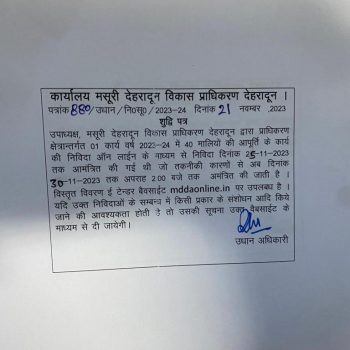 कार्यालय मसूरी देहरादून विकास प्राधिकरण देहरादून ।
पत्रांक 880/उधान / नि0सू0 / 2023-24 दिनांक 21 नवम्बर ,2023
शुद्धि पत्र
उपाध्यक्ष, मसूरी देहरादून विकास प्राधिकरण देहरादून द्वारा प्राधिकरण
क्षेत्रान्तर्गत 01 कार्य वर्ष 2023-24 में 40 मालियों की आपूर्ति के कार्य
की निविदा ऑन लाईन के माध्यम से निविदा दिनांक 25-11-2023
तक आमंत्रित की गई थी जो तकनीकी कारणों से अब दिनांक
30-11-2023 तक अपराह 2.00 बजे तक अमंत्रित की जाती है ।
विस्तृत विवरण ई टेन्डर बैवसाईट mddaonline.in पर उपलब्ध है ।
यदि उक्त निविदाओं के सम्बन्ध में किसी प्रकार के संशोधन आदि किये
जाने की आवश्यकता होती है तो उसकी सूचना उक्त वैबसाईट के
माध्यम से दी जायेगी ।
उधान अधिकारी